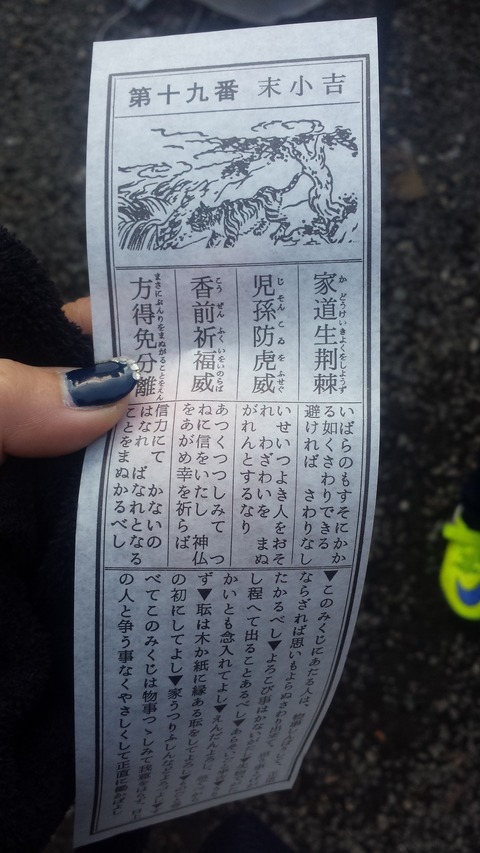 第十九番 末小吉
かどうけいきよくをしようず
家道生荊棘
いばらのもすそにかか
る如くさわりできる
避ければ さわりなし
じそんこゐをふせぐ
児孫防虎威
いせいつよき人をおそ
れ わざわいを まぬ
がれんとするなり
こうぜんふくいをいのらば
香前祈福威
あつくつつしみて つ
ねに信をいたし 神仏
をあがめ幸を祈らば
まさにぶんりをまぬがることをえん
方得免分離
信力にて かないの
はなれ ばなれとなる
ことをまぬかるべし
▼このみくじにあたる人は、物事
ならざれば思いもよらぬさわり出
たかるべし▼よろこび事はかない
し程へて出ることあるべし▼あらそい
かいとも念入れてよし▼えんだん
ず▼耺は木か紙に縁ある耺をしてよし▼
の初にしてよし▼家うつりふしんなど
べてこのみくじは物事つゝしみて
の人と争う事なくやさしくして正直に